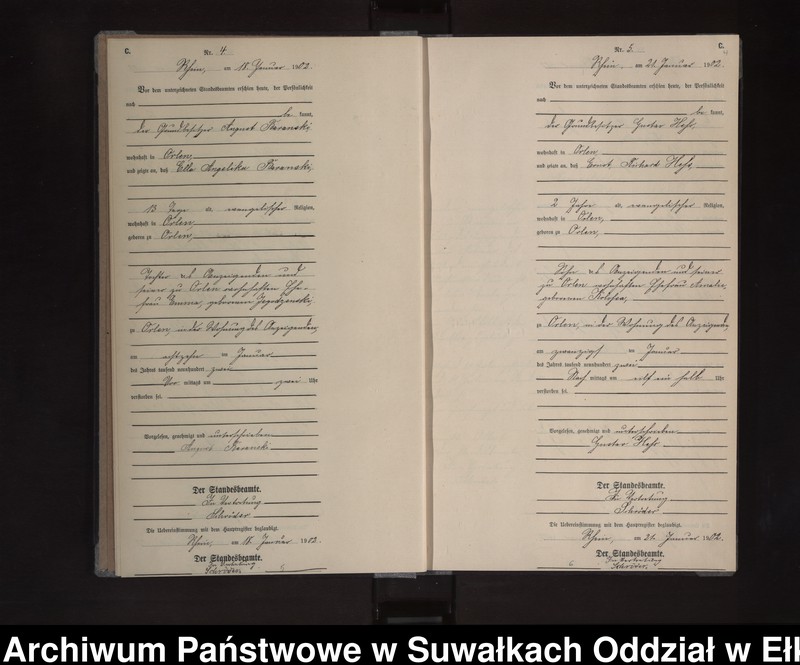 C.
Nr. 4
Rhein, am 18. Januar 1902.
Vor dem unterzeichneten Standesbeamten erschien heute, der Persönlichkeit
nach
be kannt,
der Grundbesitzer August
wohnhaft in Orlen,
und zeigte an, daß Ella Angelika
13 Tage alt, evangelischer Religion,
wohnhaft in Orlen,
geboren zu Orlen,
Tochter des Anzeigenden und
seiner zu Orlen wohnhaften Ehe-
frau Emma, geborenen
zu Orlen, in der Wohnung des Anzeigenden,
am achtzehn ten Januar
des Jahres tausend neunhundert zwei
Vor mittags um zwei Uhr
verstorben sei.
Vorgelesen, genehmigt und unterschrieben
August
Der Standesbeamte.
In Vertretung
Schröder
Die Uebereinstimmung mit dem Hauptregister beglaubigt.
Rhein, am 18. Januar 1902.
Der Standesbeamte.
In Vertretung
Schröder.
C.
Nr. 5.
Rhein, am 21. Januar 1902.
Vor dem unterzeichneten Standesbeamten erschien heute, der Persönlichkeit
nach
be kannt,
der Grundbesitzer Gustav
wohnhaft in Orlen
und zeigte an, daß Ernst Richard
2 Jahre alt, evangelischer Religion,
wohnhaft in Orlen,
geboren zu Orlen,
Sohn des Anzeigenden und seiner
zu Orlen wohnhaften Ehefrau
geborenen
zu Orlen, in der Wohnung des Anzeigenden
am zwanzigsten Januar
des Jahres tausend neunhundert zwei
Nach mittags um elf ein halb Uhr
verstorben sei.
Vorgelesen, genehmigt und unterschrieben
Gustav
Der Standesbeamte.
In Vertretung
Schröder
Die Uebereinstimmung mit dem Hauptregister beglaubigt.
Rhein, am 21. Januar 1902.
Der Standesbeamte.
In Vertretung
Schröder.
Archiwum Państwowe w Suwałkach Oddział w Ełk